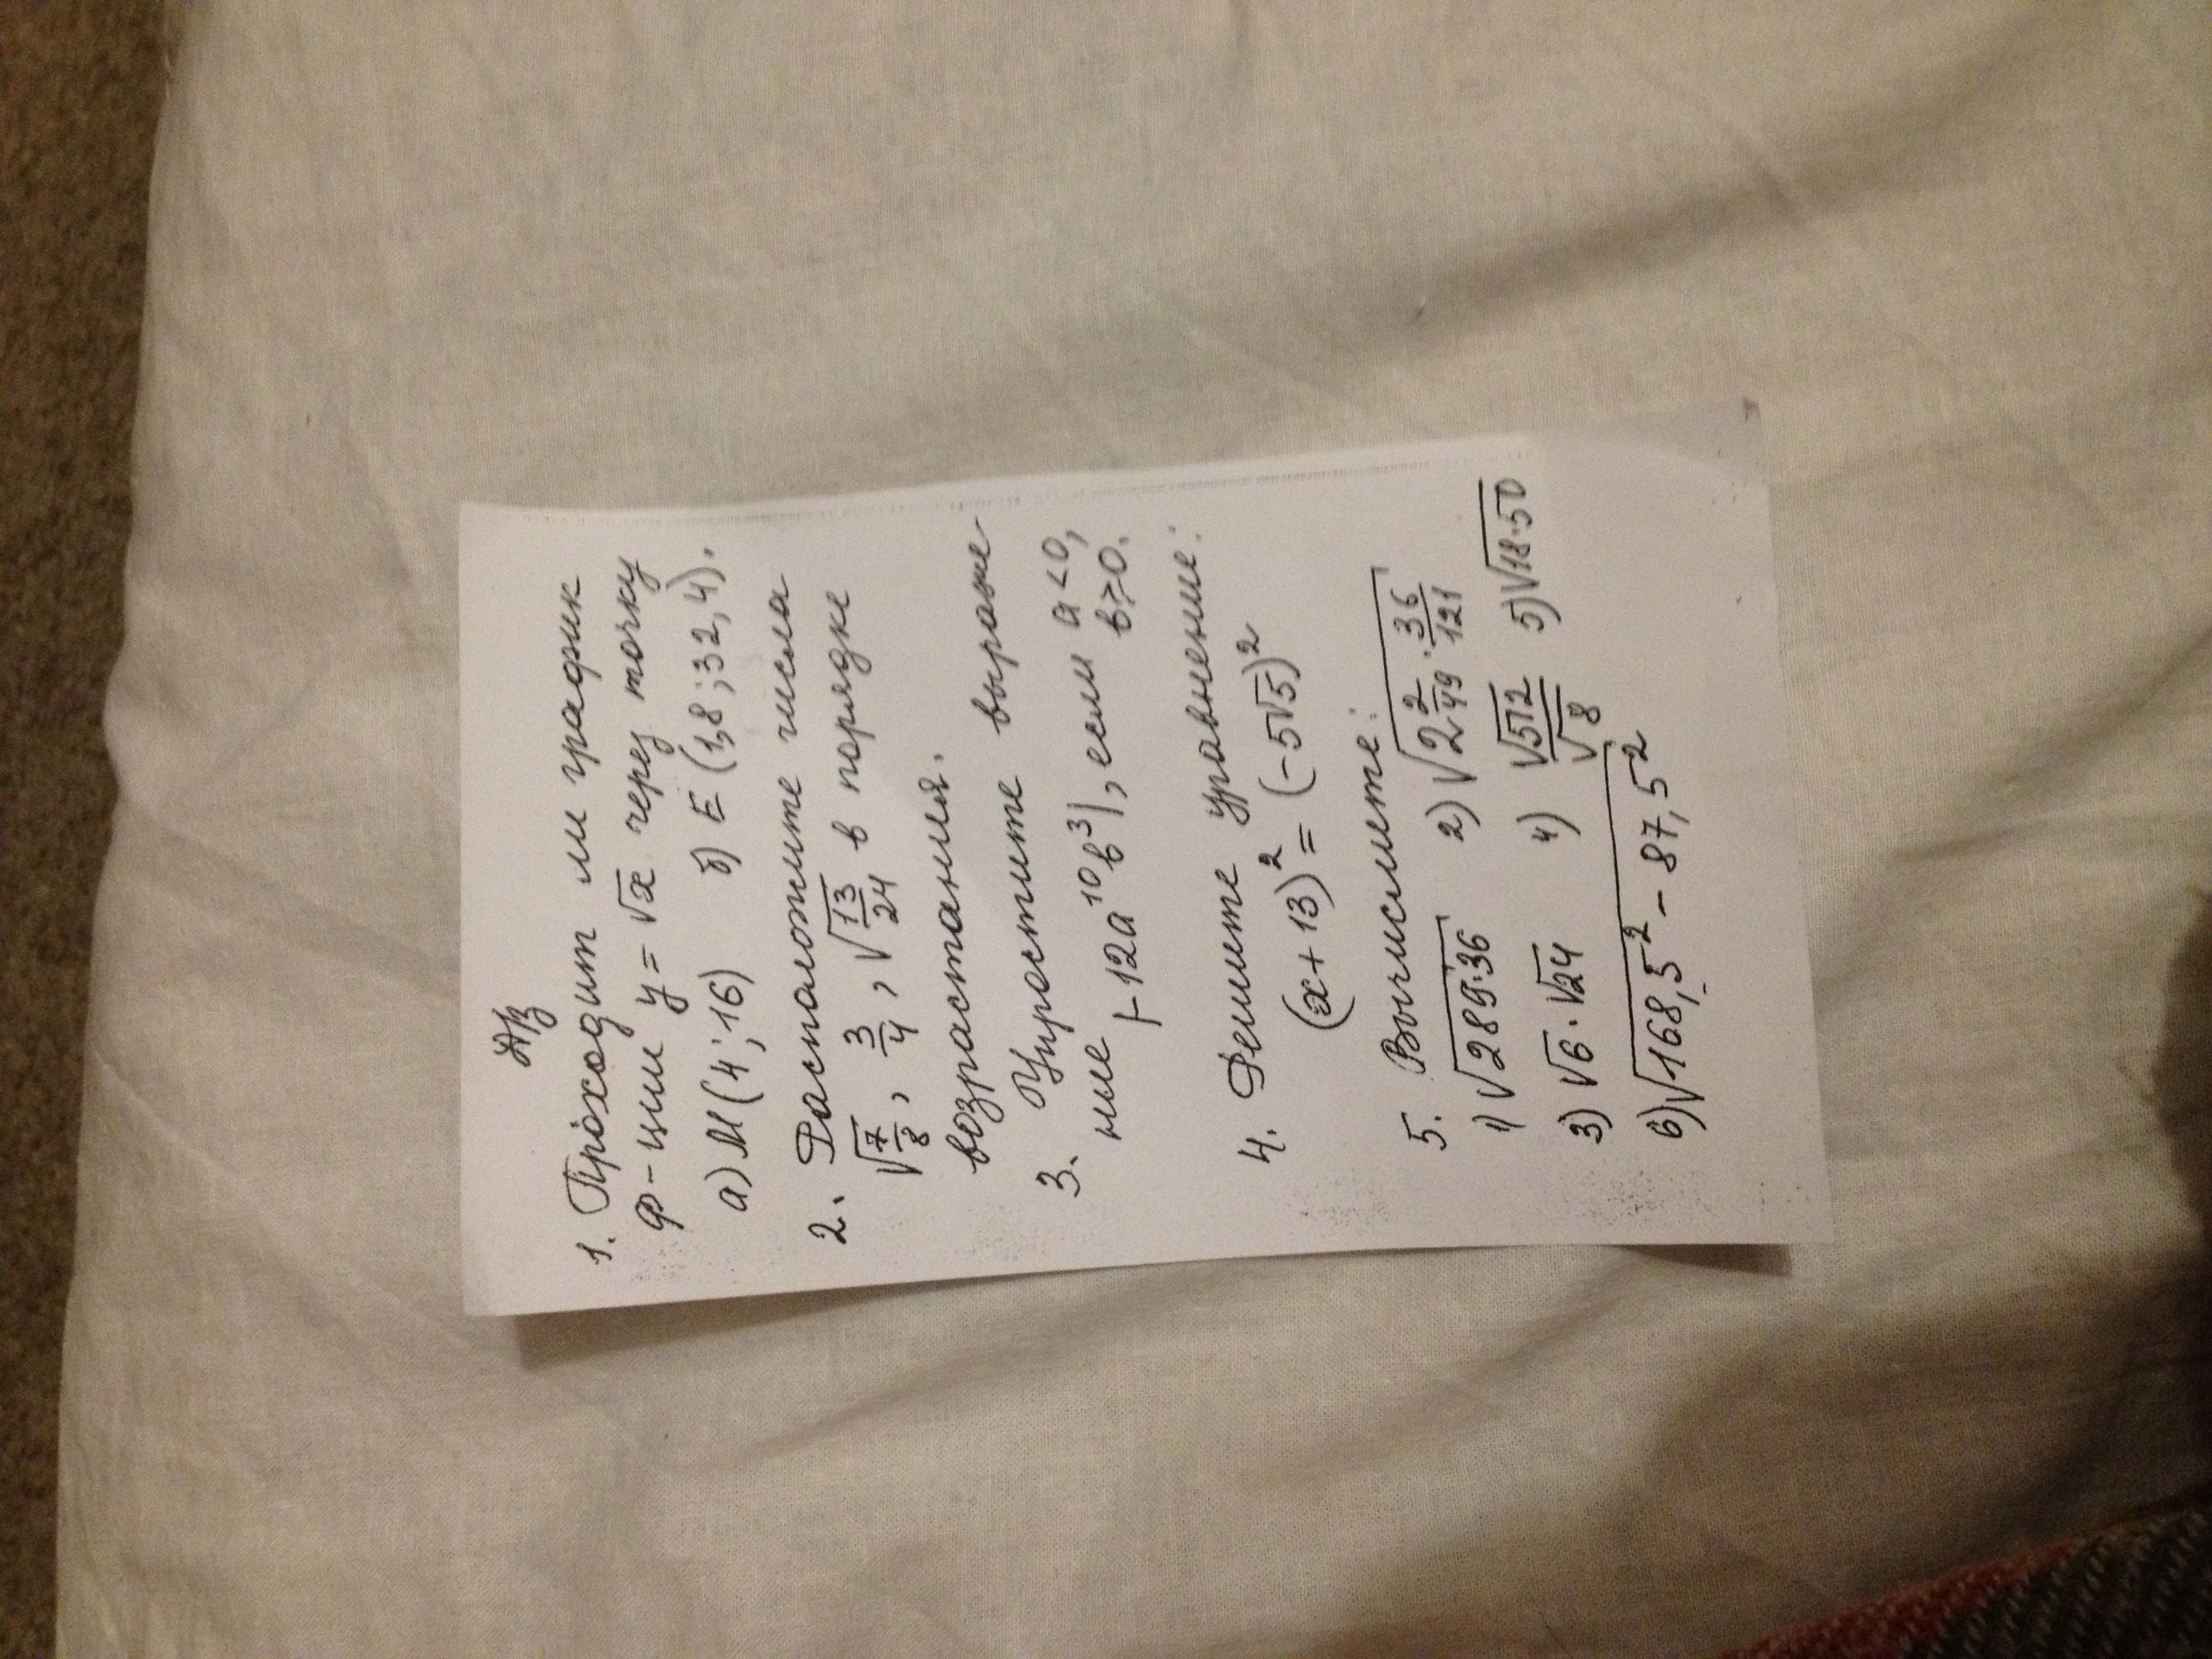 ДЗ
1. Проходит ли график
ф-ции y = √x через точку
а) М (4; 16) б) Е (1,8; 32,4).
2. Расположите числа
√7/8, 3/4, √13/24 в порядке
возрастания.
3. Упростите выраже
ние |-12a¹⁰b³|, если a<0,
b≥0.
4. Решите уравнение:
(x+13)² = (-5√5)²
5. Вычислите:
1) √289·36 2) √2 2/49 · 36/121
3) √6 · √24 4) √512/√8 5) √18·50
6) √168,5² - 87,5²